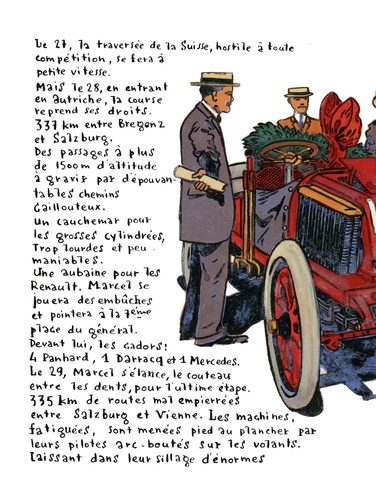 Le 27, la traversée de la Suisse, hostile à toute
compétition, se fera à
petite vitesse.
Mais le 28, en entrant
en Autriche, la course
reprend ses droits.
337 km entre Bregenz
et Salzburg.
Des passages à plus
de 1500m d'altitude
à gravir par d'épouvan-
tables chemins
caillouteux.
Un cauchemar pour
les grosses cylindrées,
Trop lourdes et peu
maniables.
Une aubaine pour les
Renault. Marcel se
jouera des embûches
et pointera à la 7ème
place du général.
Devant lui, les cadors!
4 Panhard, 1 Darracq et 1 Mercedes.
Le 29, Marcel s'élance, le couteau
entre les dents, pour l'ultime étape.
335 km de routes mal empierrées
entre Salzburg et Vienne. Les machines,
fatiguées, sont menées pied au plancher par
leurs pilotes arc-boutés sur les volants.
Laissant dans leur sillage d'énormes